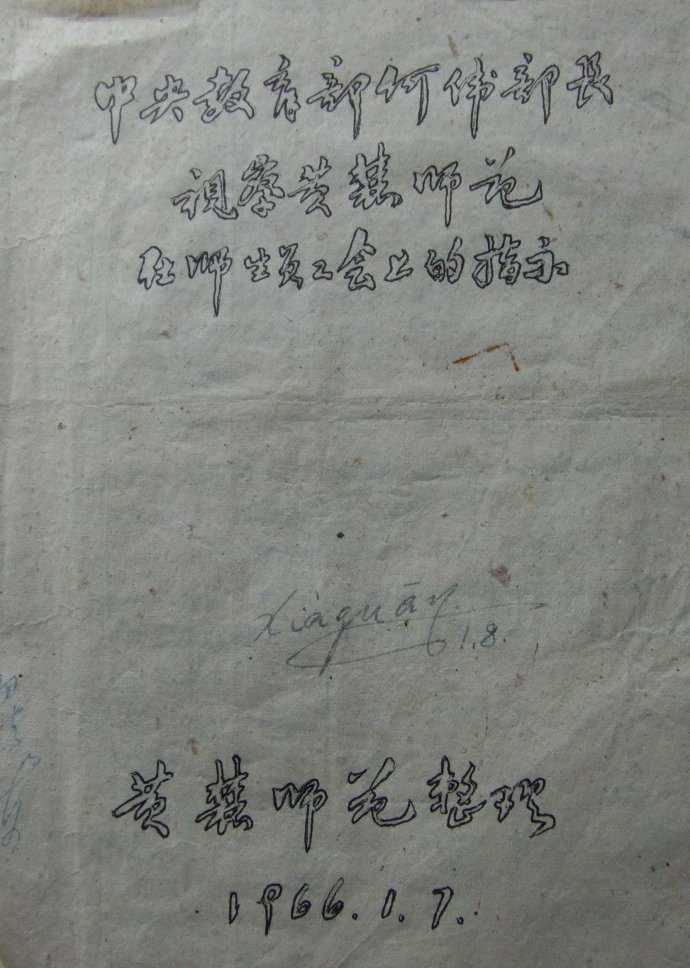 中央教育部何伟部长
视察黄麓师范
在师生员工会上的指示
1.8.
黄麓师范整理
1966.1.7.